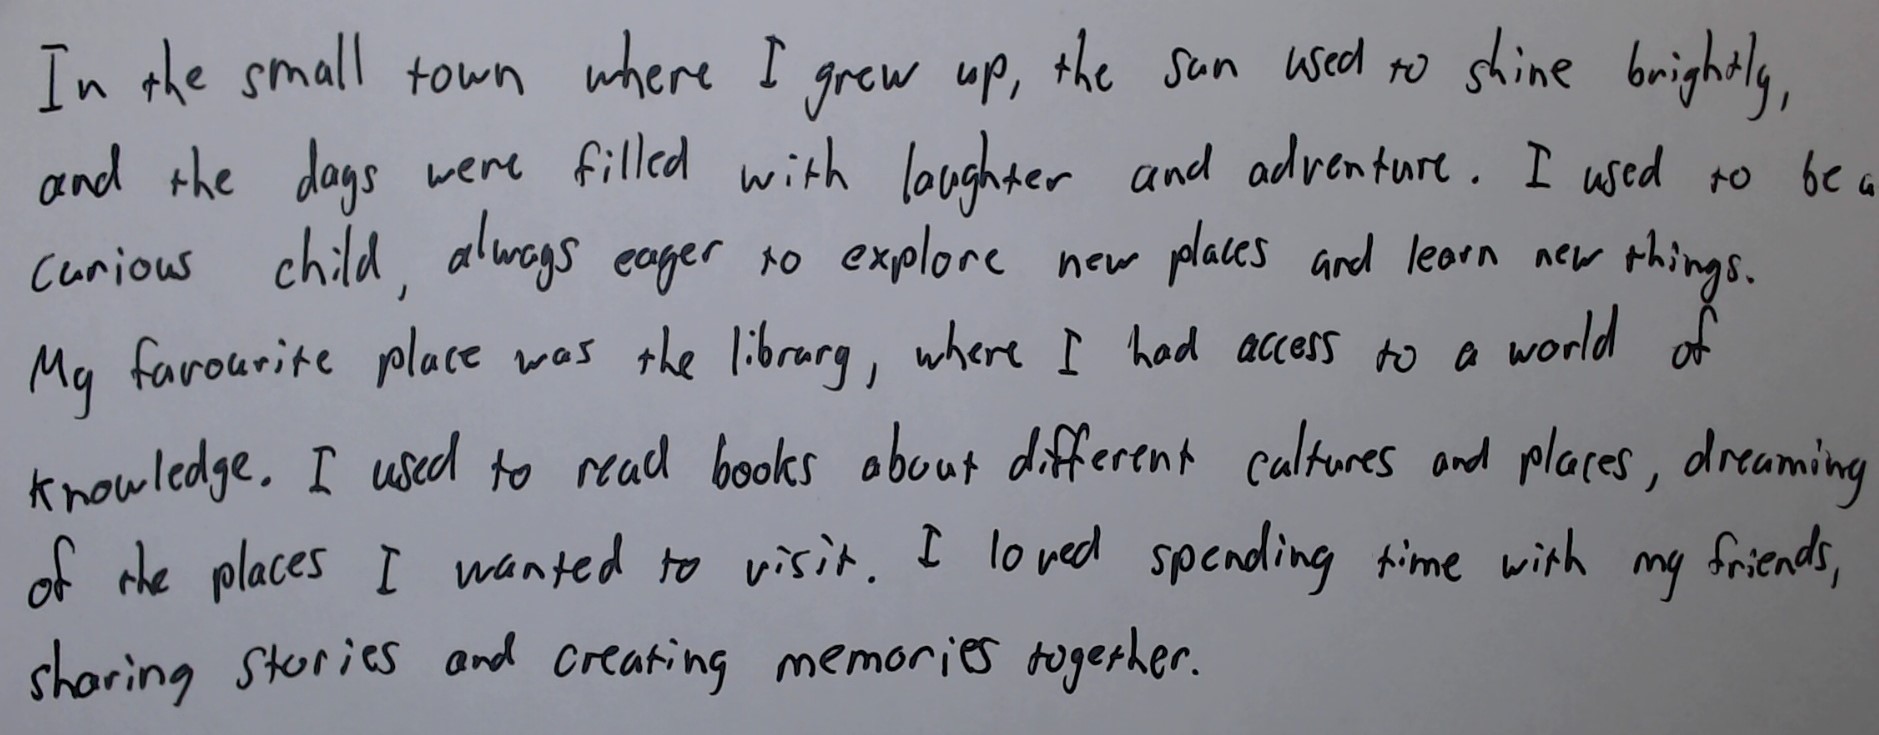 In the small town where I grew up, the sun used to shine brightly,
and the days were filled with laughter and adventure. I used to be a
curious child, always eager to explore new places and learn new things.
My favourite place was the library, where I had access to a world of
knowledge. I used to read books about different cultures and places, dreaming
of the places I wanted to visit. I loved spending time with my friends,
sharing stories and creating memories together.